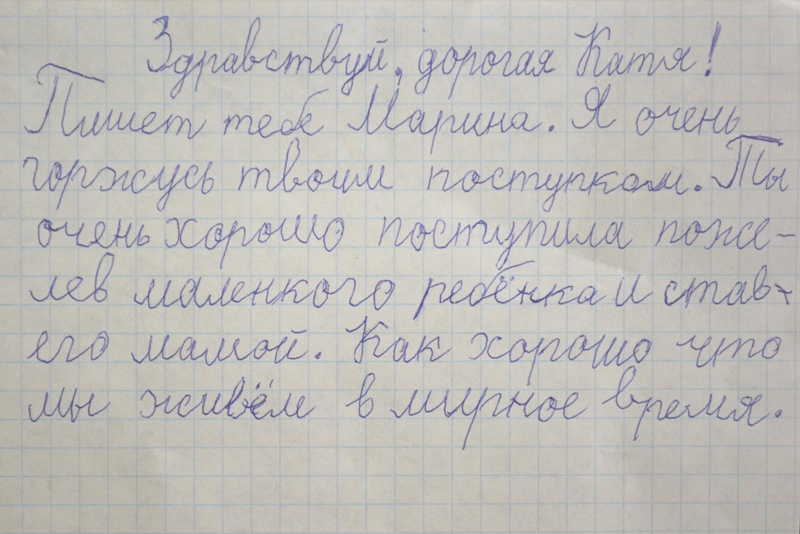 Здравствуй, дорогая Катя!
Пишет тебе Марина. Я очень
горжусь твоим поступком. Ты
очень хорошо поступила поже-
лев маленкого ребёнка и став
его мамой. Как хорошо что
мы живём в мирное время.